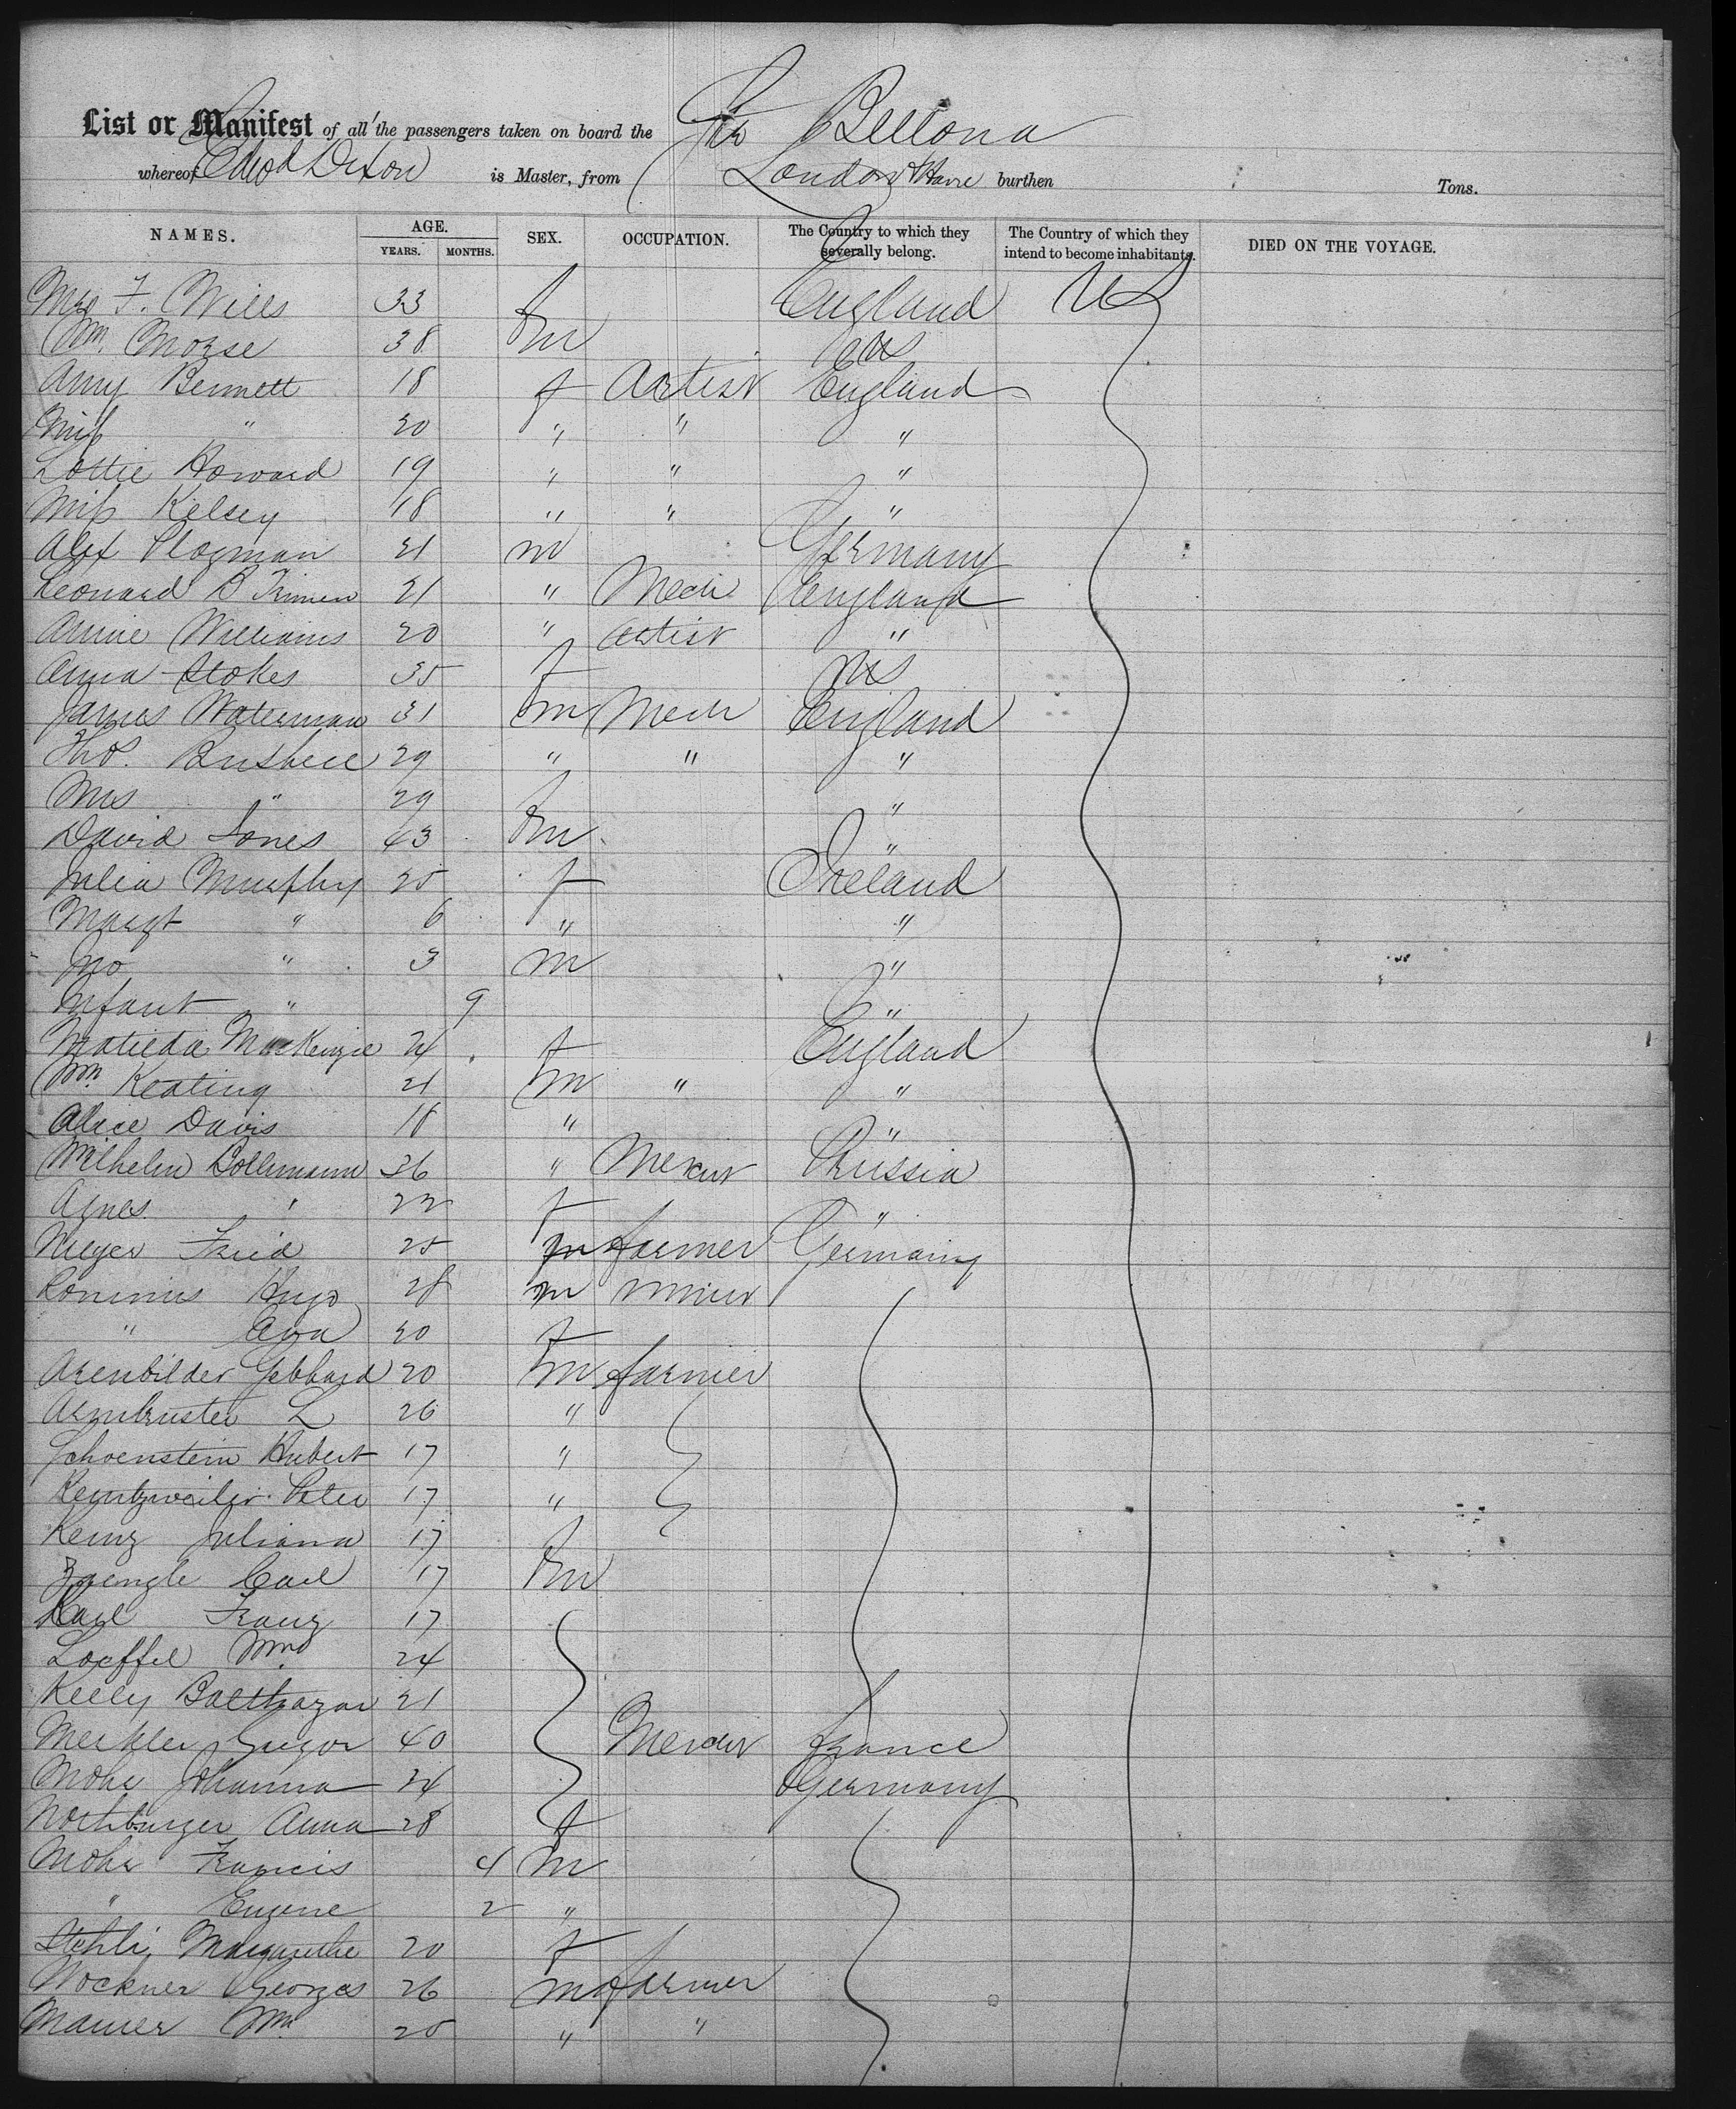 List or Manifest of all the passengers taken on board the Str Bellona
whereof Edwd Dixon is Master, from London & Havre burthen Tons.
NAMES. AGE. YEARS. MONTHS. SEX. OCCUPATION. The Country to which they severally belong. The Country of which they intend to become inhabitants. DIED ON THE VOYAGE.
Mrs F. Wills 33 f England US
Wm. Morse 38 m US
Amy Bennett 18 f Artist England
Miss " 20 " " "
Lottie Howard 19 " " "
Miss Kelsey 18 " " "
Alex Plogman 21 m Germany
Leonard B 21 " Mech England
Annie Williams 20 " artist "
Anna Stokes 35 f US
James Waterman 31 m Mech England
Thos. Bushell 29 " " "
Mrs " 29 f "
David Jones 43 m "
Julia Murphy 25 f Ireland
Margt " 6 " "
Jno " 3 m "
Infant " 9 "
Matilda MacKenzie 24 f England
Wm Keating 21 m " "
Alice Davis 18 " "
Wilhelm Bollmann 36 " Merct Prussia
Agnes " 22 f "
Meyer Fried 25 m farmer Germany
Hugo 28 m miner
" 20 f
Gebhard 20 m farmer
Armbruster L 26 "
Schoenstein Hubert 17 "
Kentzweiler Peter 17 "
Juliana 17 f
Zaengle Carl 17 m
Karl Franz 17
Loeffel Wm 24
Kelly Balthazar 21
Merkler Grigor 40 Merct France
Mohr Johanna 24 Germany
Anna 28 f
Mohr Francis 4 m
" Eugene 2 "
Stehli Margarethe 20 f
Wockner Georges 26 m farmer
Maurer Wm 25 " "